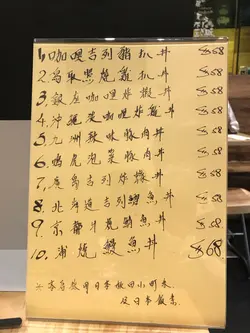 1. 咖哩吉列豬扒丼 $58
2. 鳥取照燒雞扒丼 $58
3. 銀座咖哩炸蝦丼 $58
4. 沖繩咖哩炸雞丼 $58
5. 九州辣味豚肉丼 $58
6. 鳴尾泡菜豚肉丼 $58
7. 廣島吉列炸蠔丼 $58
8. 北海道吉列鱈魚丼 $58
9. 京都汁燒鯖魚丼 $58
10. 蒲燒鰻魚丼 $68
※本店敬用日本秋田小町米
及日本飯素